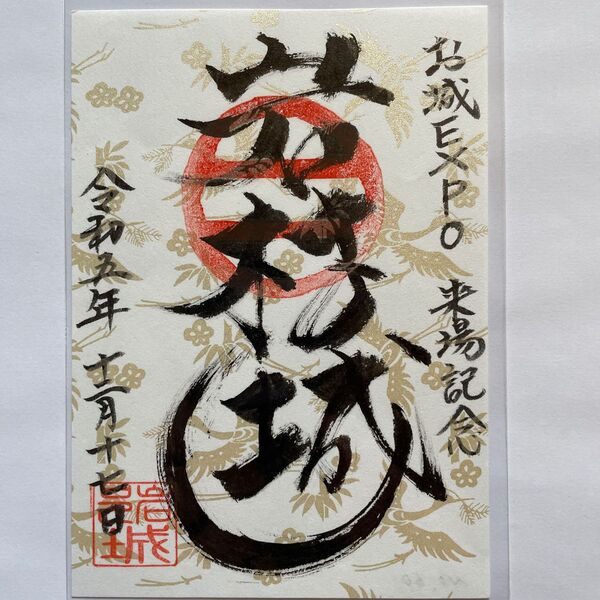 お城EXPO 来場記念
岩村城
令和五年 十二月十七日